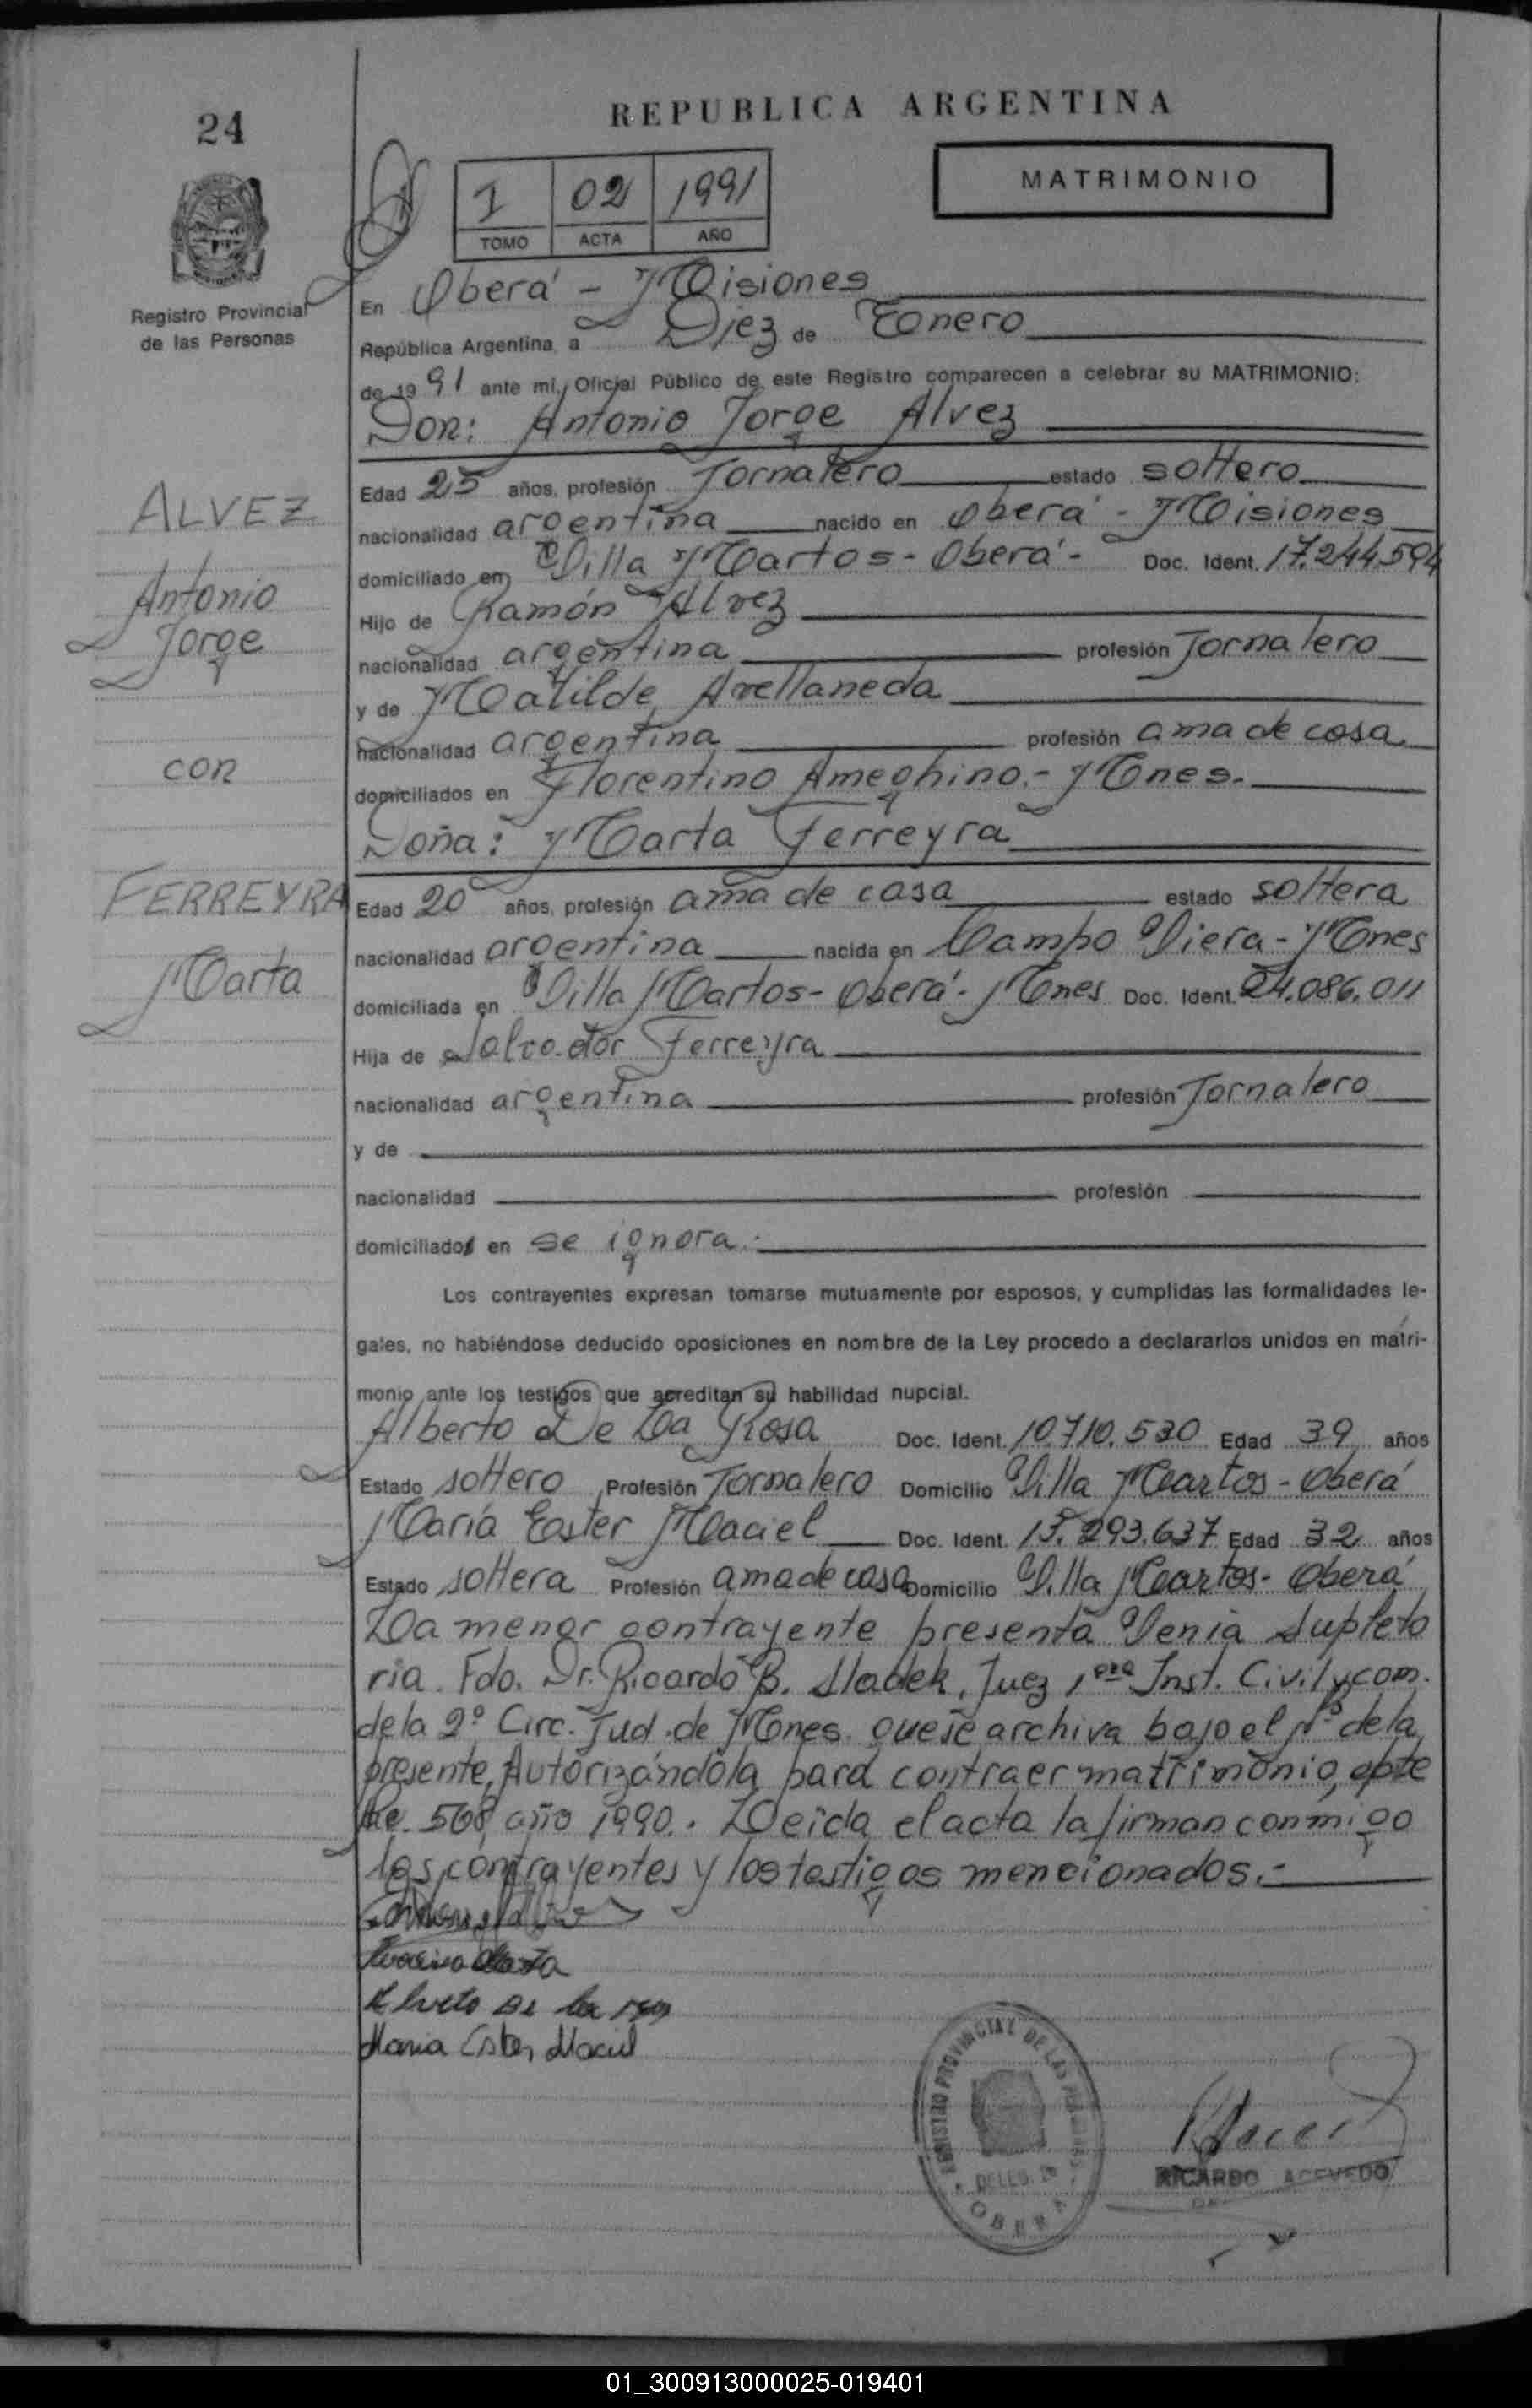 24
REPUBLICA ARGENTINA
MATRIMONIO
I 02 1991
TOMO ACTA AÑO
Registro Provincial
de las Personas
En Oberá - Misiones
República Argentina, a Diez de Enero
de 19 91 ante mí, Oficial Público de este Registro comparecen a celebrar su MATRIMONIO:
Don: Antonio Jorge Alvez
ALVEZ
Antonio
Jorge
con
FERREYRA
Marta
Edad 25 años, profesión Jornalero estado soltero
nacionalidad argentina nacido en Oberá - Misiones
domiciliado en Villa Martos - Oberá - Doc. Ident. 17.244.594
Hijo de Ramón Alvez
nacionalidad argentina profesión Jornalero
y de Matilde Avellaneda
nacionalidad argentina profesión ama de casa
domiciliados en Florentino Ameghino.- Mnes.
Doña: Marta Ferreyra
Edad 20 años, profesión ama de casa estado soltera
nacionalidad argentina nacida en Campo Viera - Mnes
domiciliada en Villa Martos - Oberá - Mnes Doc. Ident. 24.086.011
Hija de Salvador Ferreyra
nacionalidad argentina profesión Jornalero
y de
nacionalidad profesión
domiciliados en se ignora.
Los contrayentes expresan tomarse mutuamente por esposos, y cumplidas las formalidades le-
gales, no habiéndose deducido oposiciones en nombre de la Ley procedo a declararlos unidos en matri-
monio ante los testigos que acreditan su habilidad nupcial.
Alberto De La Rosa Doc. Ident. 10.710.530 Edad 39 años
Estado soltero Profesión Jornalero Domicilio Villa Martos - Oberá
María Ester Maciel Doc. Ident. 13.293.637 Edad 32 años
Estado soltera Profesión ama de casa Domicilio Villa Martos - Oberá
La menor contrayente presenta Venia Supleto
ria. Fdo. Dr. Ricardo B. Sladek, Juez 1era Inst. Civil y com.
de la 2º Circ. Jud. de Mnes. que se archiva bajo el Nº de la
presente, Autorizándola para contraer matrimonio, epte
568 año 1990.. Leída el acta la firman conmigo
los contrayentes y los testigos mencionados.-
Alverto De la
Maria Ester Maciel
REGISTRO PROVINCIAL DE LAS PERSONAS
DELEG.
OBERA
RICARDO ACEVEDO
01_300913000025-019401